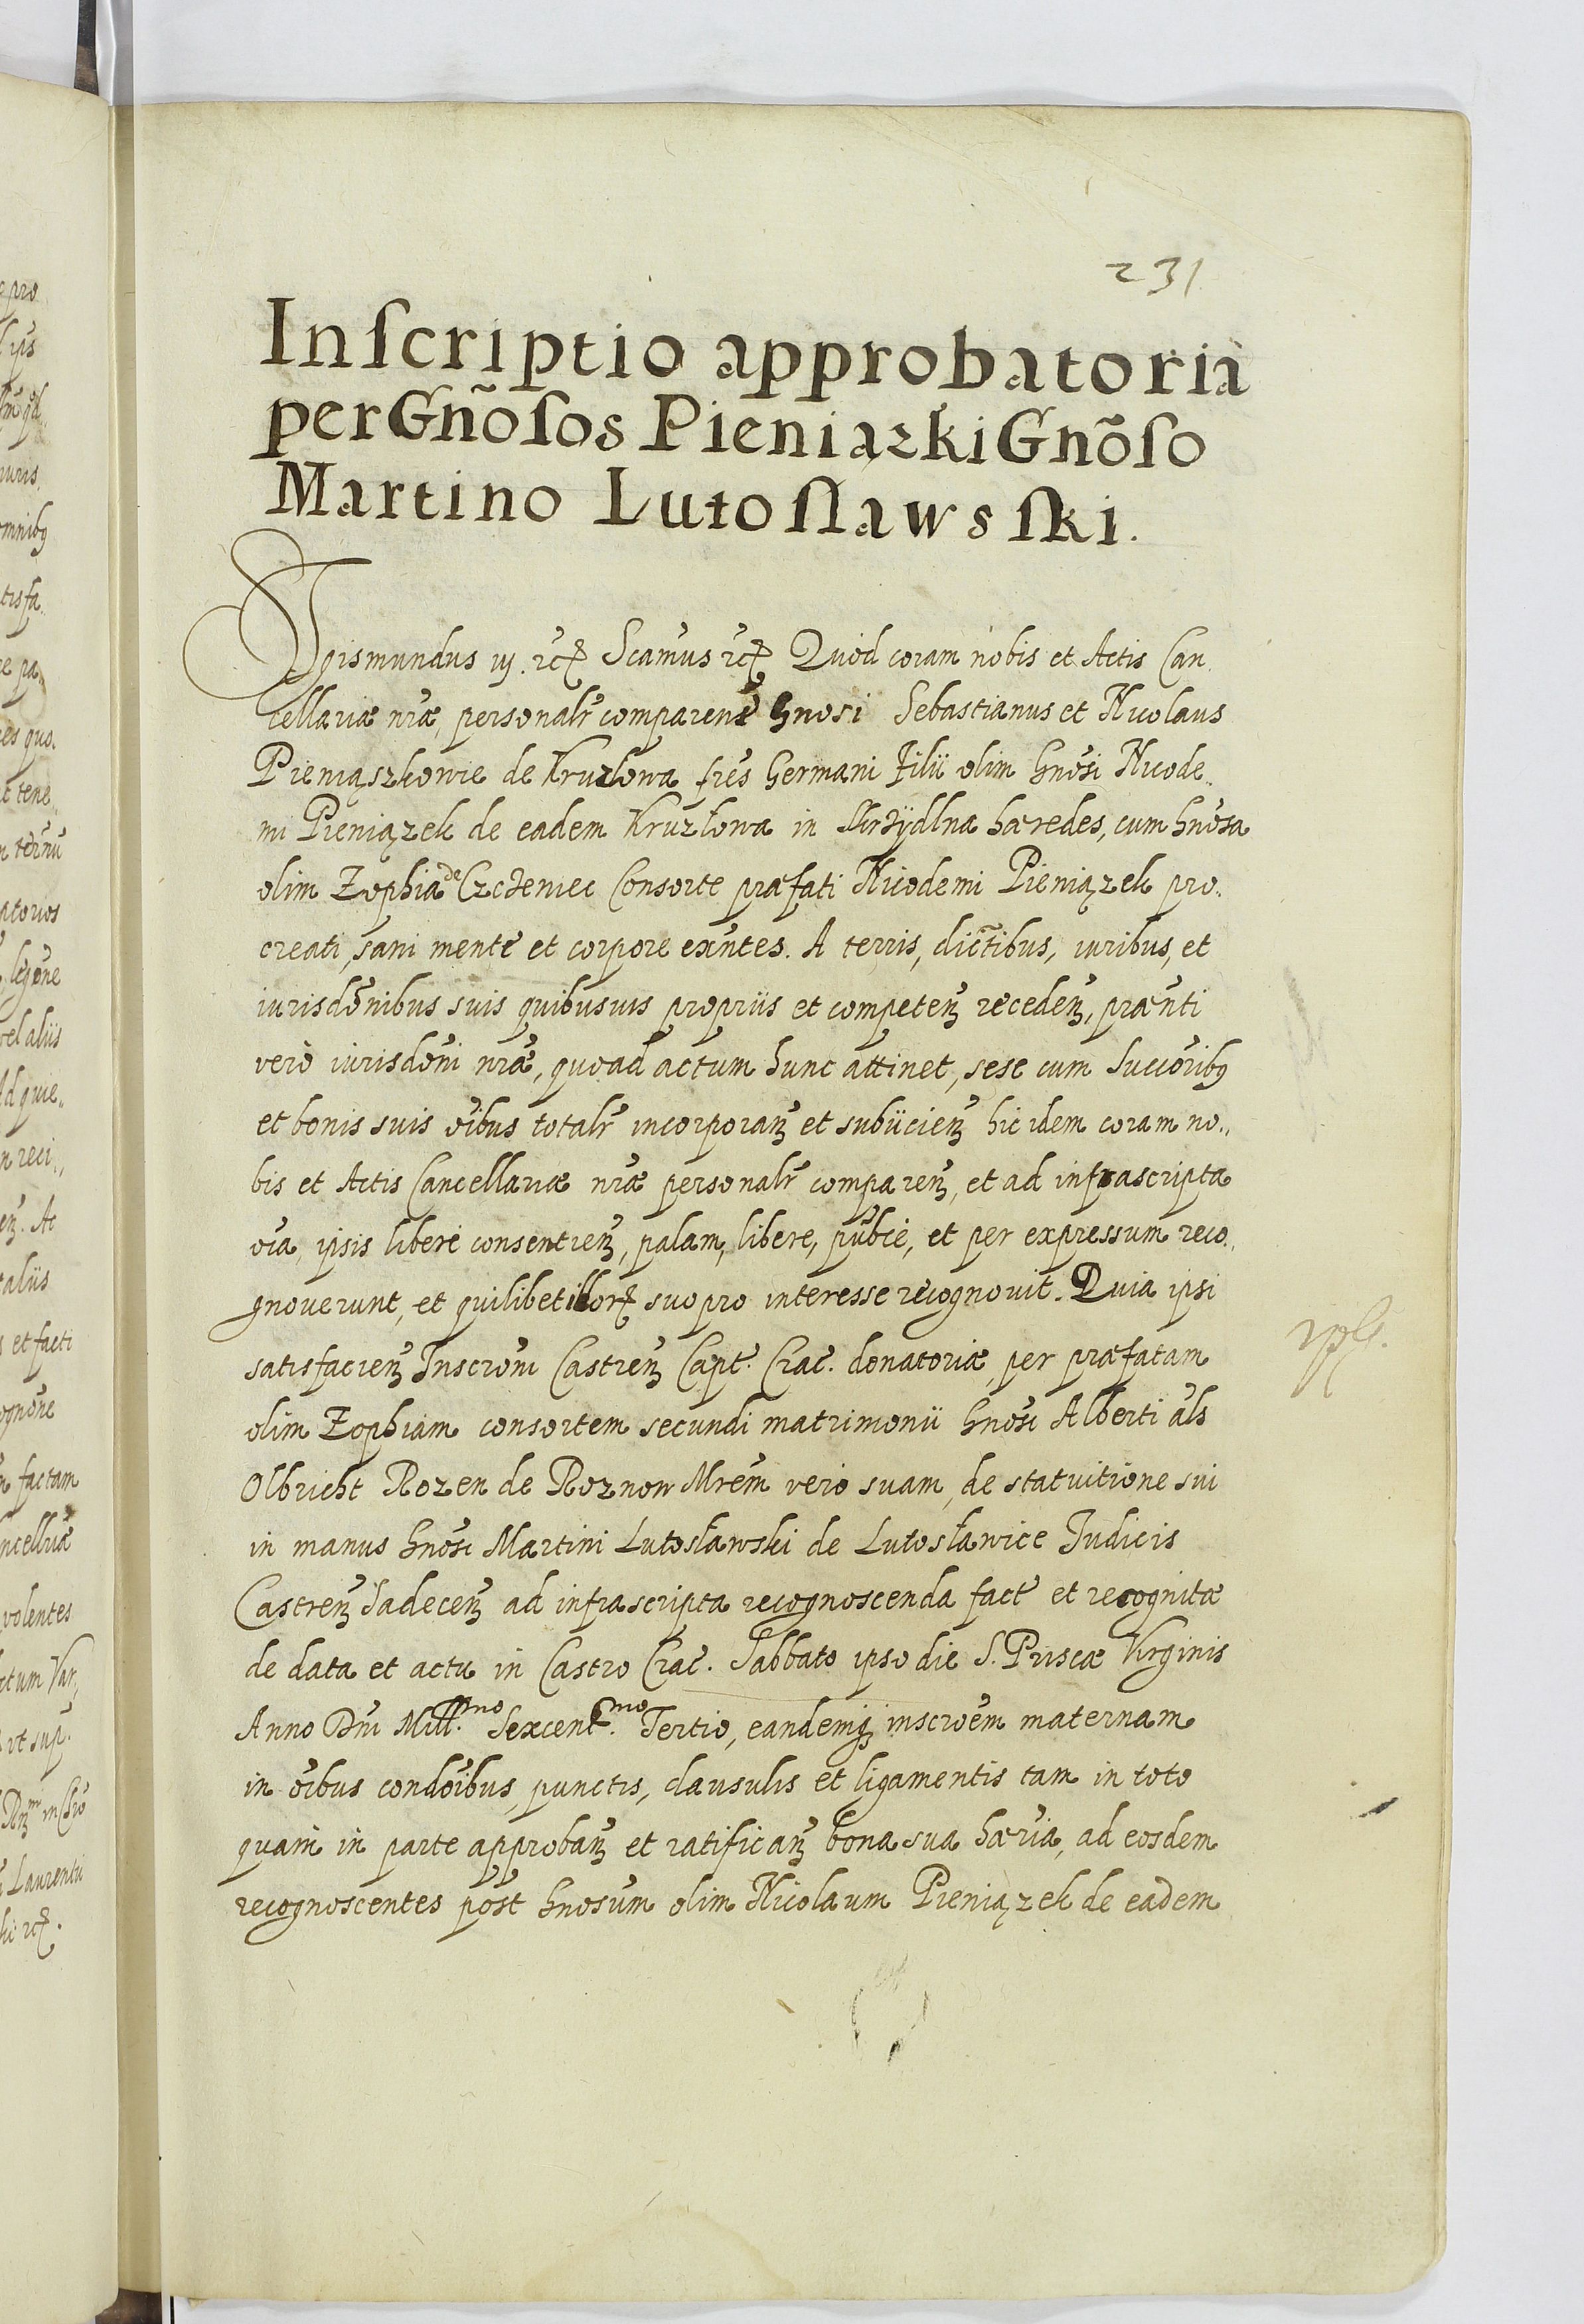 231
Inscriptio approbatoria
per Gnõsos Pieniązki Gnõso
Martino Lutoslawsski.
Sigismundus iij. etc. Scimus etc. Quod coram nobis et Actis Can
cellariæ nr̃æ, personalr̃ comparen̄ Gnosi Sebastianus et Nicolaus
Pieniąszkowie de Kruzlowa fr̃es Germani Filii olim Gnõsi Nicode
mi Pieniązek de eadem Kruzłowa in Skrzÿdlna hæredes, cum Gnõsa
olim Zophia de Czcheniec Consorte præfati Nicodemi Pieniązek pro
creati, sani mente et corpore exn̄tes. A terris, dictibus, iuribus, et
iurisdõnibus suis quibusuis propriis et competen̄ receden̄, præn̄ti
verò iurisdõni nr̃æ, quoad actum hunc attinet, sese cum succõribꝰ
et bonis suis õibus totalr̃ incorporan̄ et subiicien̄ hic idem coram no
bis et Actis Cancellariæ nr̃æ personalr̃ comparen̄, et ad infrascripta
õia, ipsis liberè consentien̄, palam, libere, publ̃cè, et per expressum reco
gnouerunt, et quilibet illorꝝ suo pro interesse recognouit. Quia ipsi
satisfacien̄ Inscrõni Castren̄ Capt. Crac. donatoriæ, per præfatam
olim Zophiam consortem secundi matrimonii Gnõsi Alberti als̃
Olbricht Rozen de Roznow Mr̃em vero suam, de statuitione sui
in manus Gnõsi Martini Lutosławski de Lutosławice Iudicis
Castren̄ Sadecen̄ ad infrascripta recognoscenda fact̃ et recognitæ
de data et actu in Castro Crac. Sabbato ipso die S. Priscæ Virginis
Anno Dn̄i Mill.mo Sexcent.mo Tertio, eandemqꝫ inscrõem maternam
in õibus condõibus, punctis, clausulis et ligamentis tam in toto
quàm in parte approban̄ et ratifican̄ bona sua hær̃ia, ad eosdem
recognoscentes post Gnõsum olim Nicolaum Pieniązek de eadem